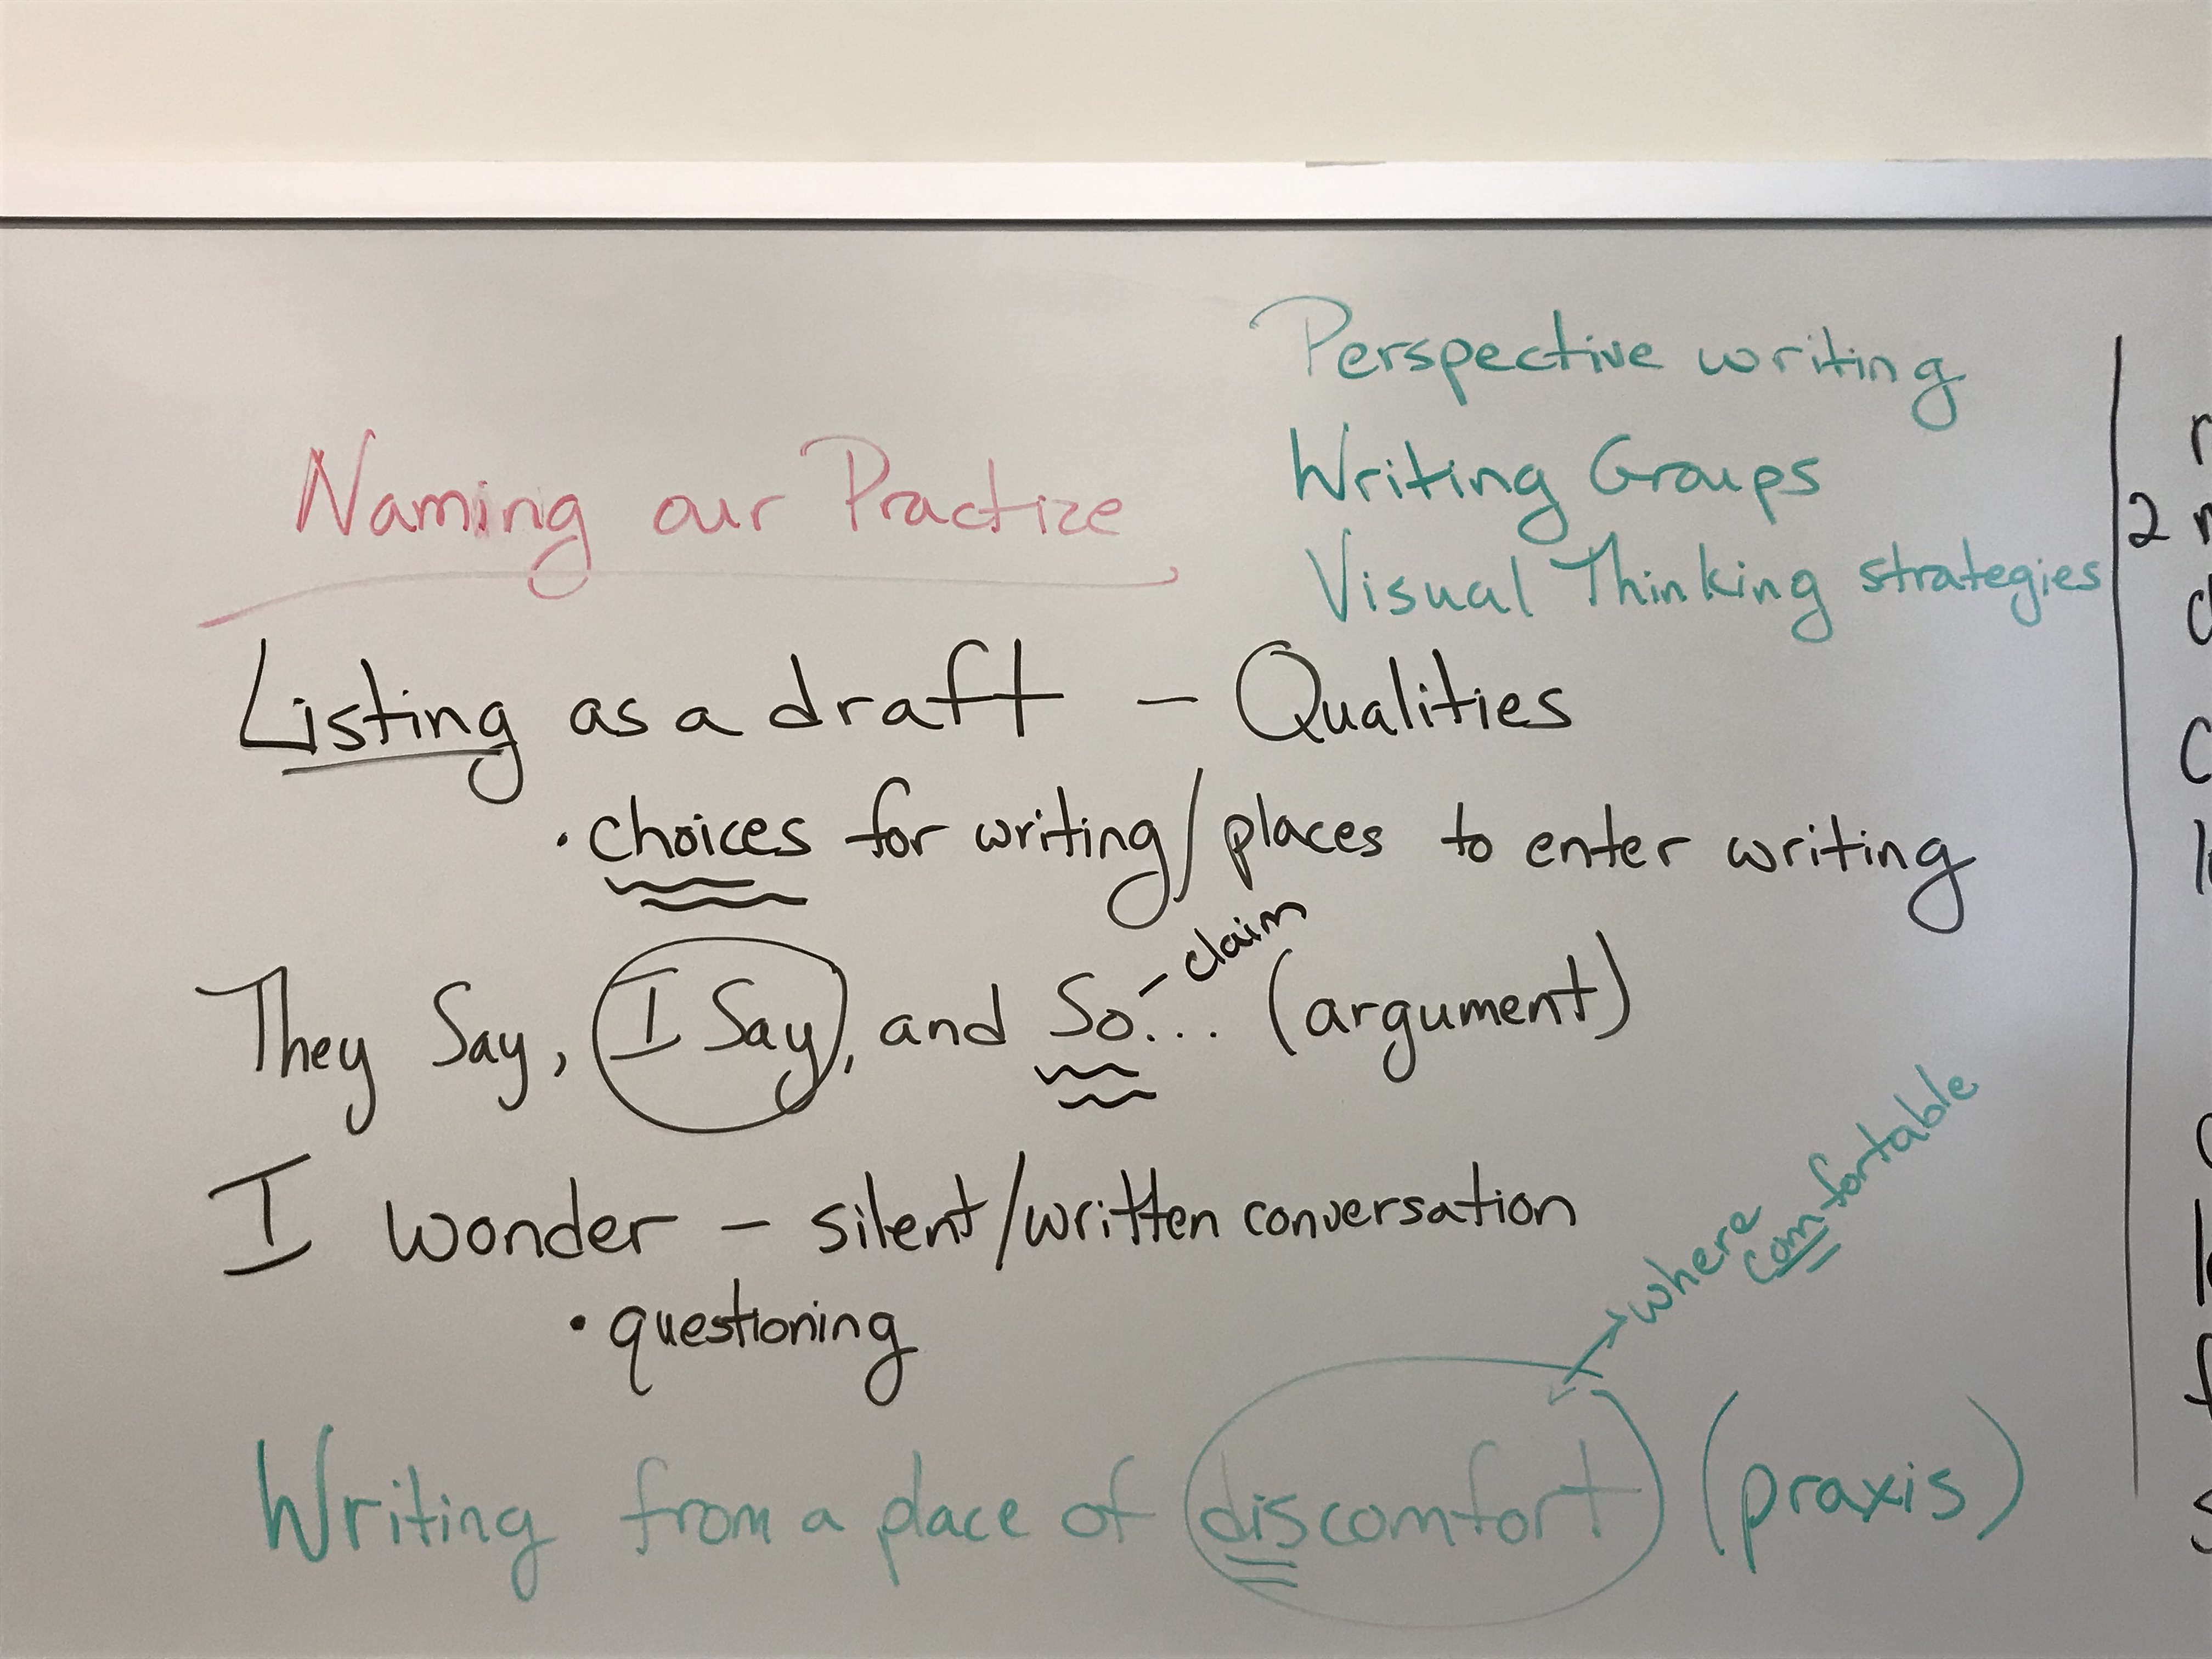 Perspective writing
Writing Groups
Visual Thinking strategies
Naming our Practice
Listing as a draft – Qualities
• choices for writing/places to enter writing
claim
They Say, I Say, and So... (argument)
I wonder – silent/written conversation
• questioning
where
comfortable
Writing from a place of discomfort (praxis)
2